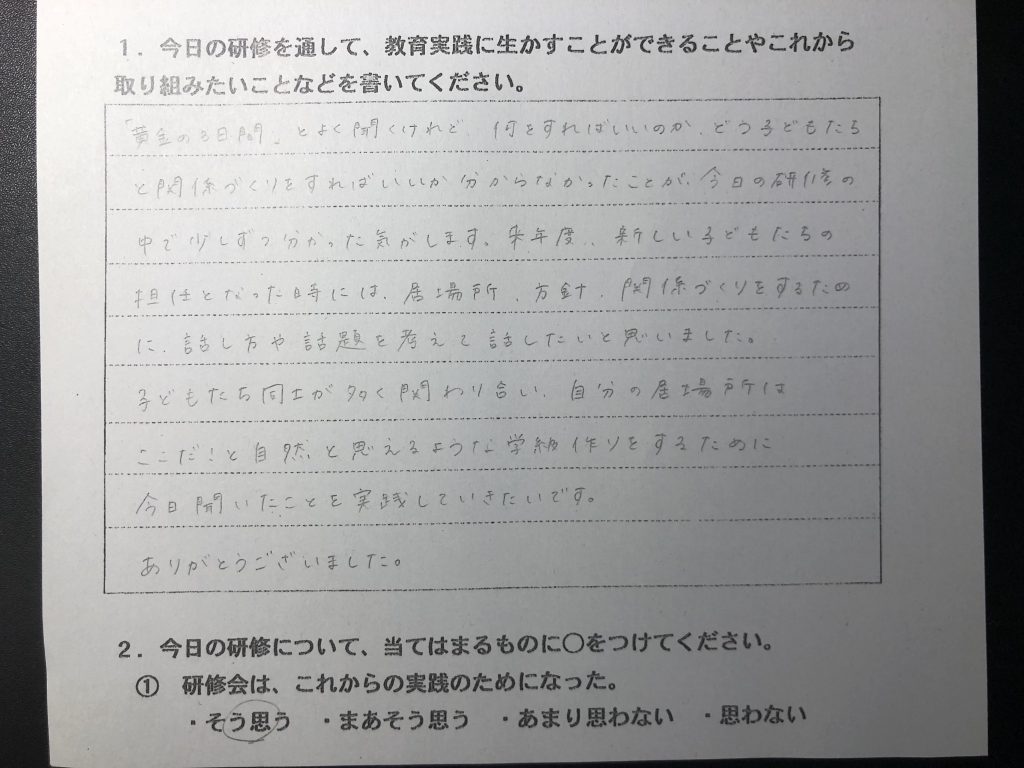 1．今日の研修を通して、教育実践に生かすことができることやこれから
取り組みたいことなどを書いてください。
「黄金の3日間」とよく聞くけれど、何をすればいいのか、どう子どもたち
と関係づくりをすればいいか分からなかったことが、今日の研修の
中で少しずつ分かった気がします。来年度、新しい子どもたちの
担任となった時には、居場所、方針、関係づくりをするため
に、話し方や話題を考えて話したいと思いました。
子どもたち同士が多く関わり合い、自分の居場所は
ここだ！と自然と思えるような学級作りをするために
今日聞いたことを実践していきたいです。
ありがとうございました。
2．今日の研修について、当てはまるものに○をつけてください。
① 研修会は、これからの実践のためになった。
・そう思う ・まあそう思う ・あまり思わない ・思わない